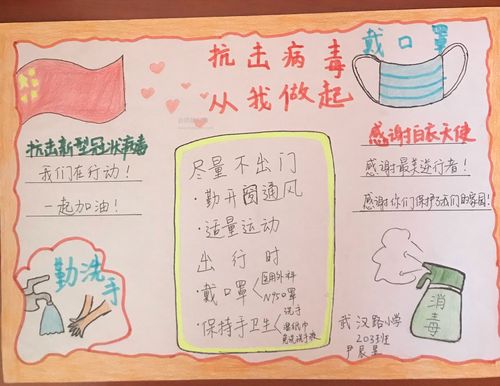 抗击病毒
从我做起
戴口罩
抗击新型冠状病毒
我们在行动！
一起加油！
感谢白衣天使
感谢最美逆行者！
感谢你们保护了我们的家园！
尽量不出门
·勤开窗通风
·适量运动
出行时
·戴口罩
医用外科
N95口罩
·保持手卫生
洗手
湿纸巾
免洗洗手液
勤洗手
消毒
武汉路小学
203班